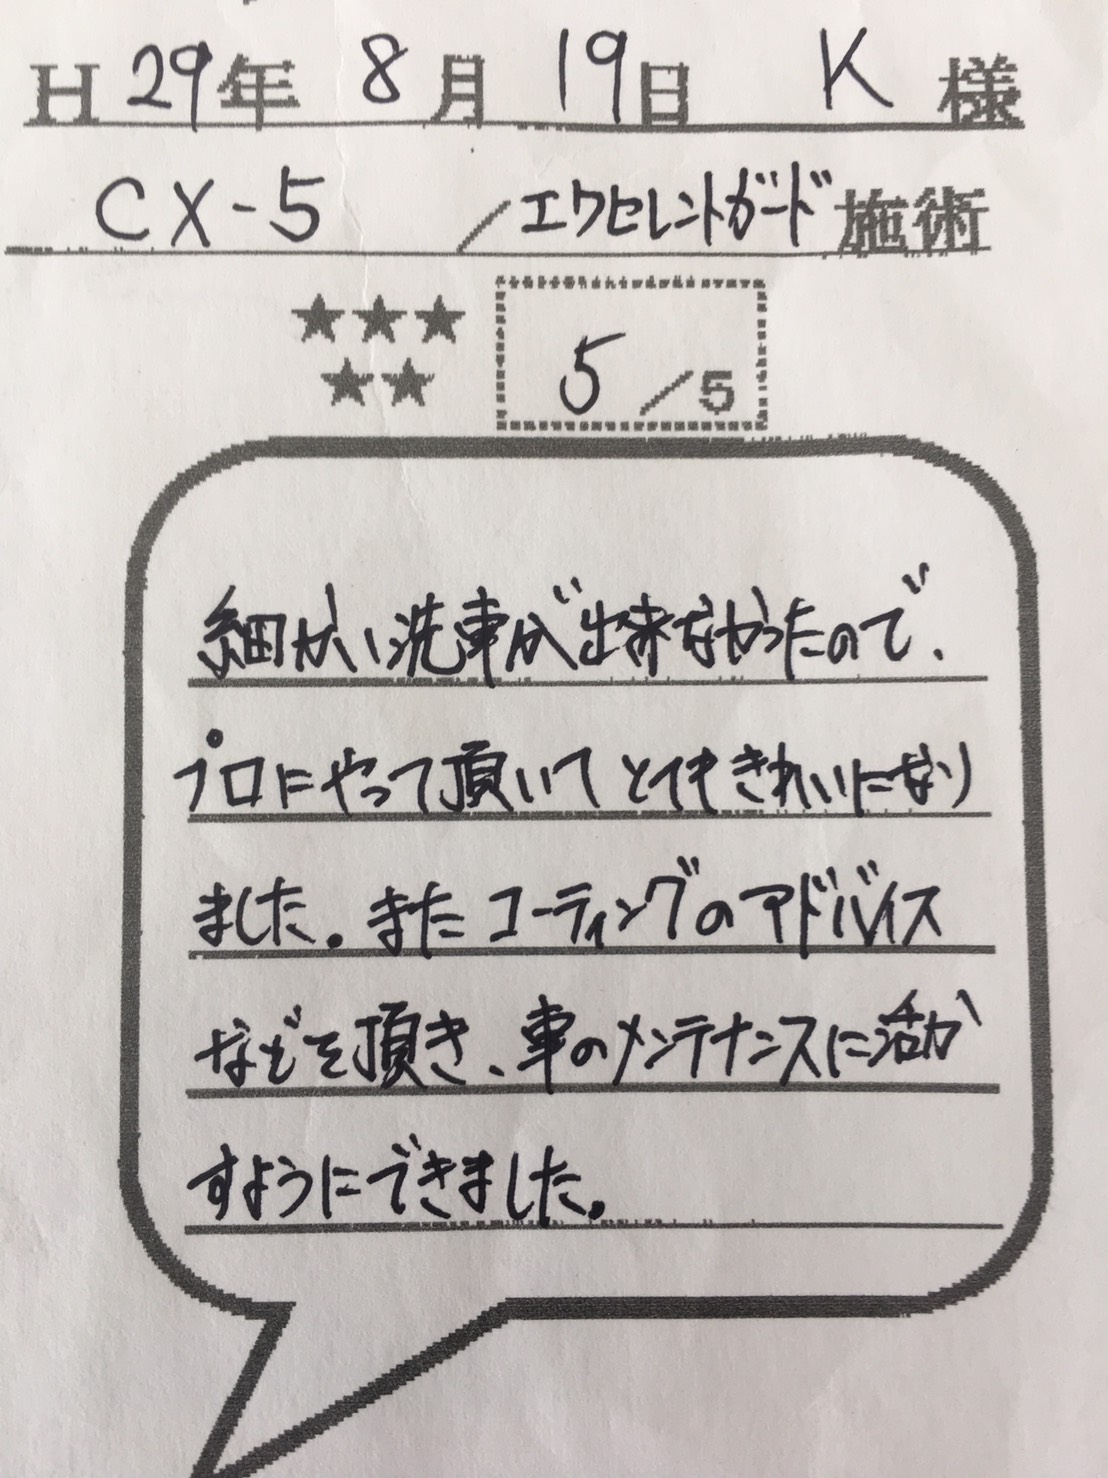 H 29年 8月 19日 K 様
CX-5 /エクセレントガード施術
★★★
★★
5/5
細かい洗車が出来なかったので、
プロにやって頂いてとてもきれいになり
ました。またコーティングのアドバイス
などを頂き、車のメンテナンスに活か
すようにできました。